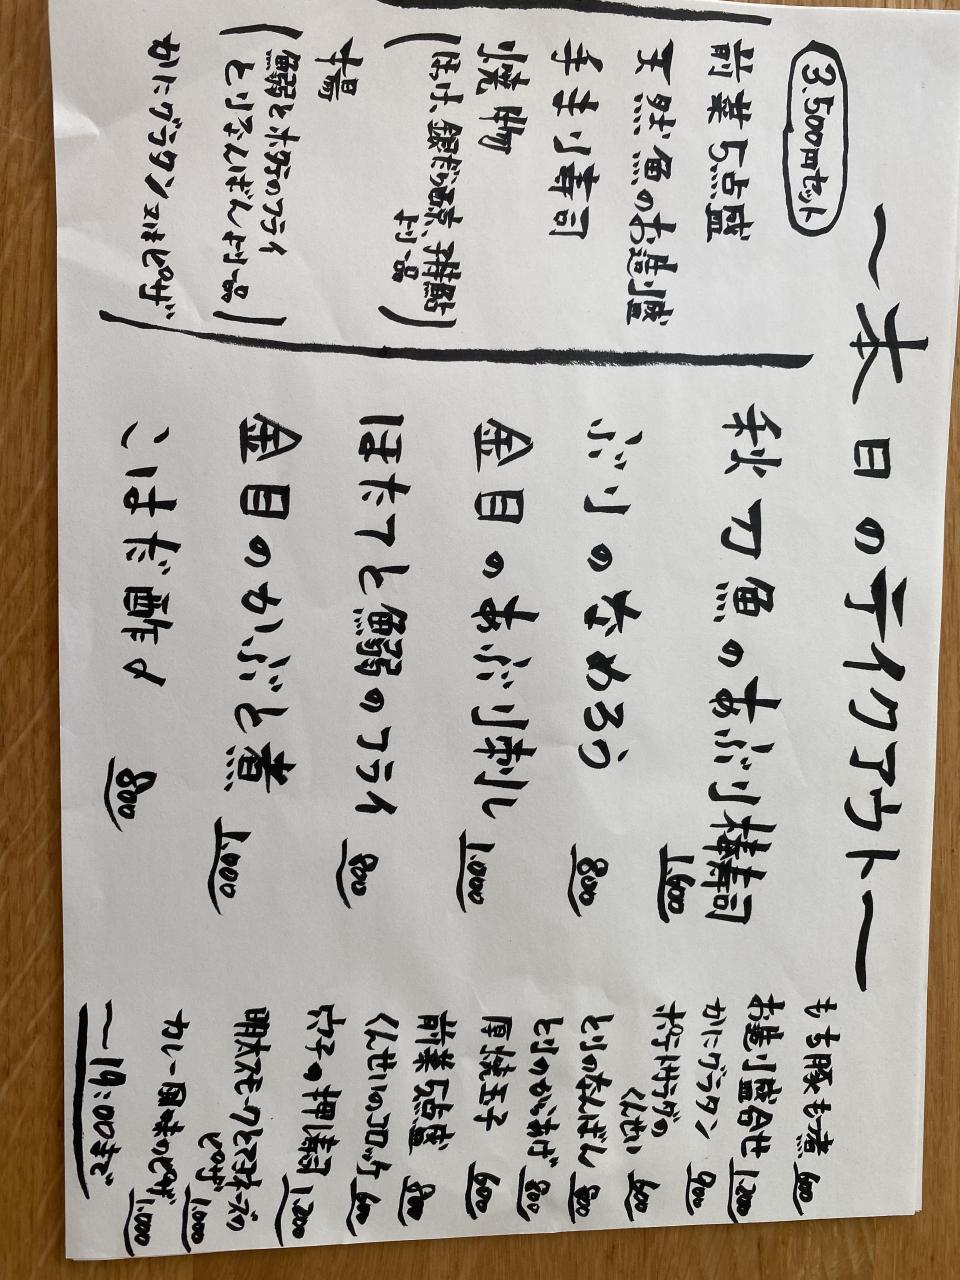 〜本日のテイクアウト〜
3.500円セット
前菜5点盛
天然魚のお造り盛
手まり寿司
焼物
(ほっけ、銀だら西京、稚鮎
より一品)
揚
(鰯とホタテのフライ
とりなんばんより一品)
かにグラタン又はピザ
秋刀魚のあぶり棒寿司 1.600
ぶりのなめろう 800
金目のあぶり刺し 1.000
ほたてと鰯のフライ 800
金目のかぶと煮 1.000
こはだ酢〆 800
もち豚もつ煮 600
お造り盛合せ 1.200
かにグラタン 900
ポテトサラダの
くんせい 600
とりのなんばん 800
とりのからあげ 800
厚焼玉子 600
前菜5点盛 800
くんせいのコロッケ 600
穴子の押し寿司 1.200
明太スモークとマヨネーズの
ピザ 1.000
カレー風味のピザ 1.000
〜19:00まで